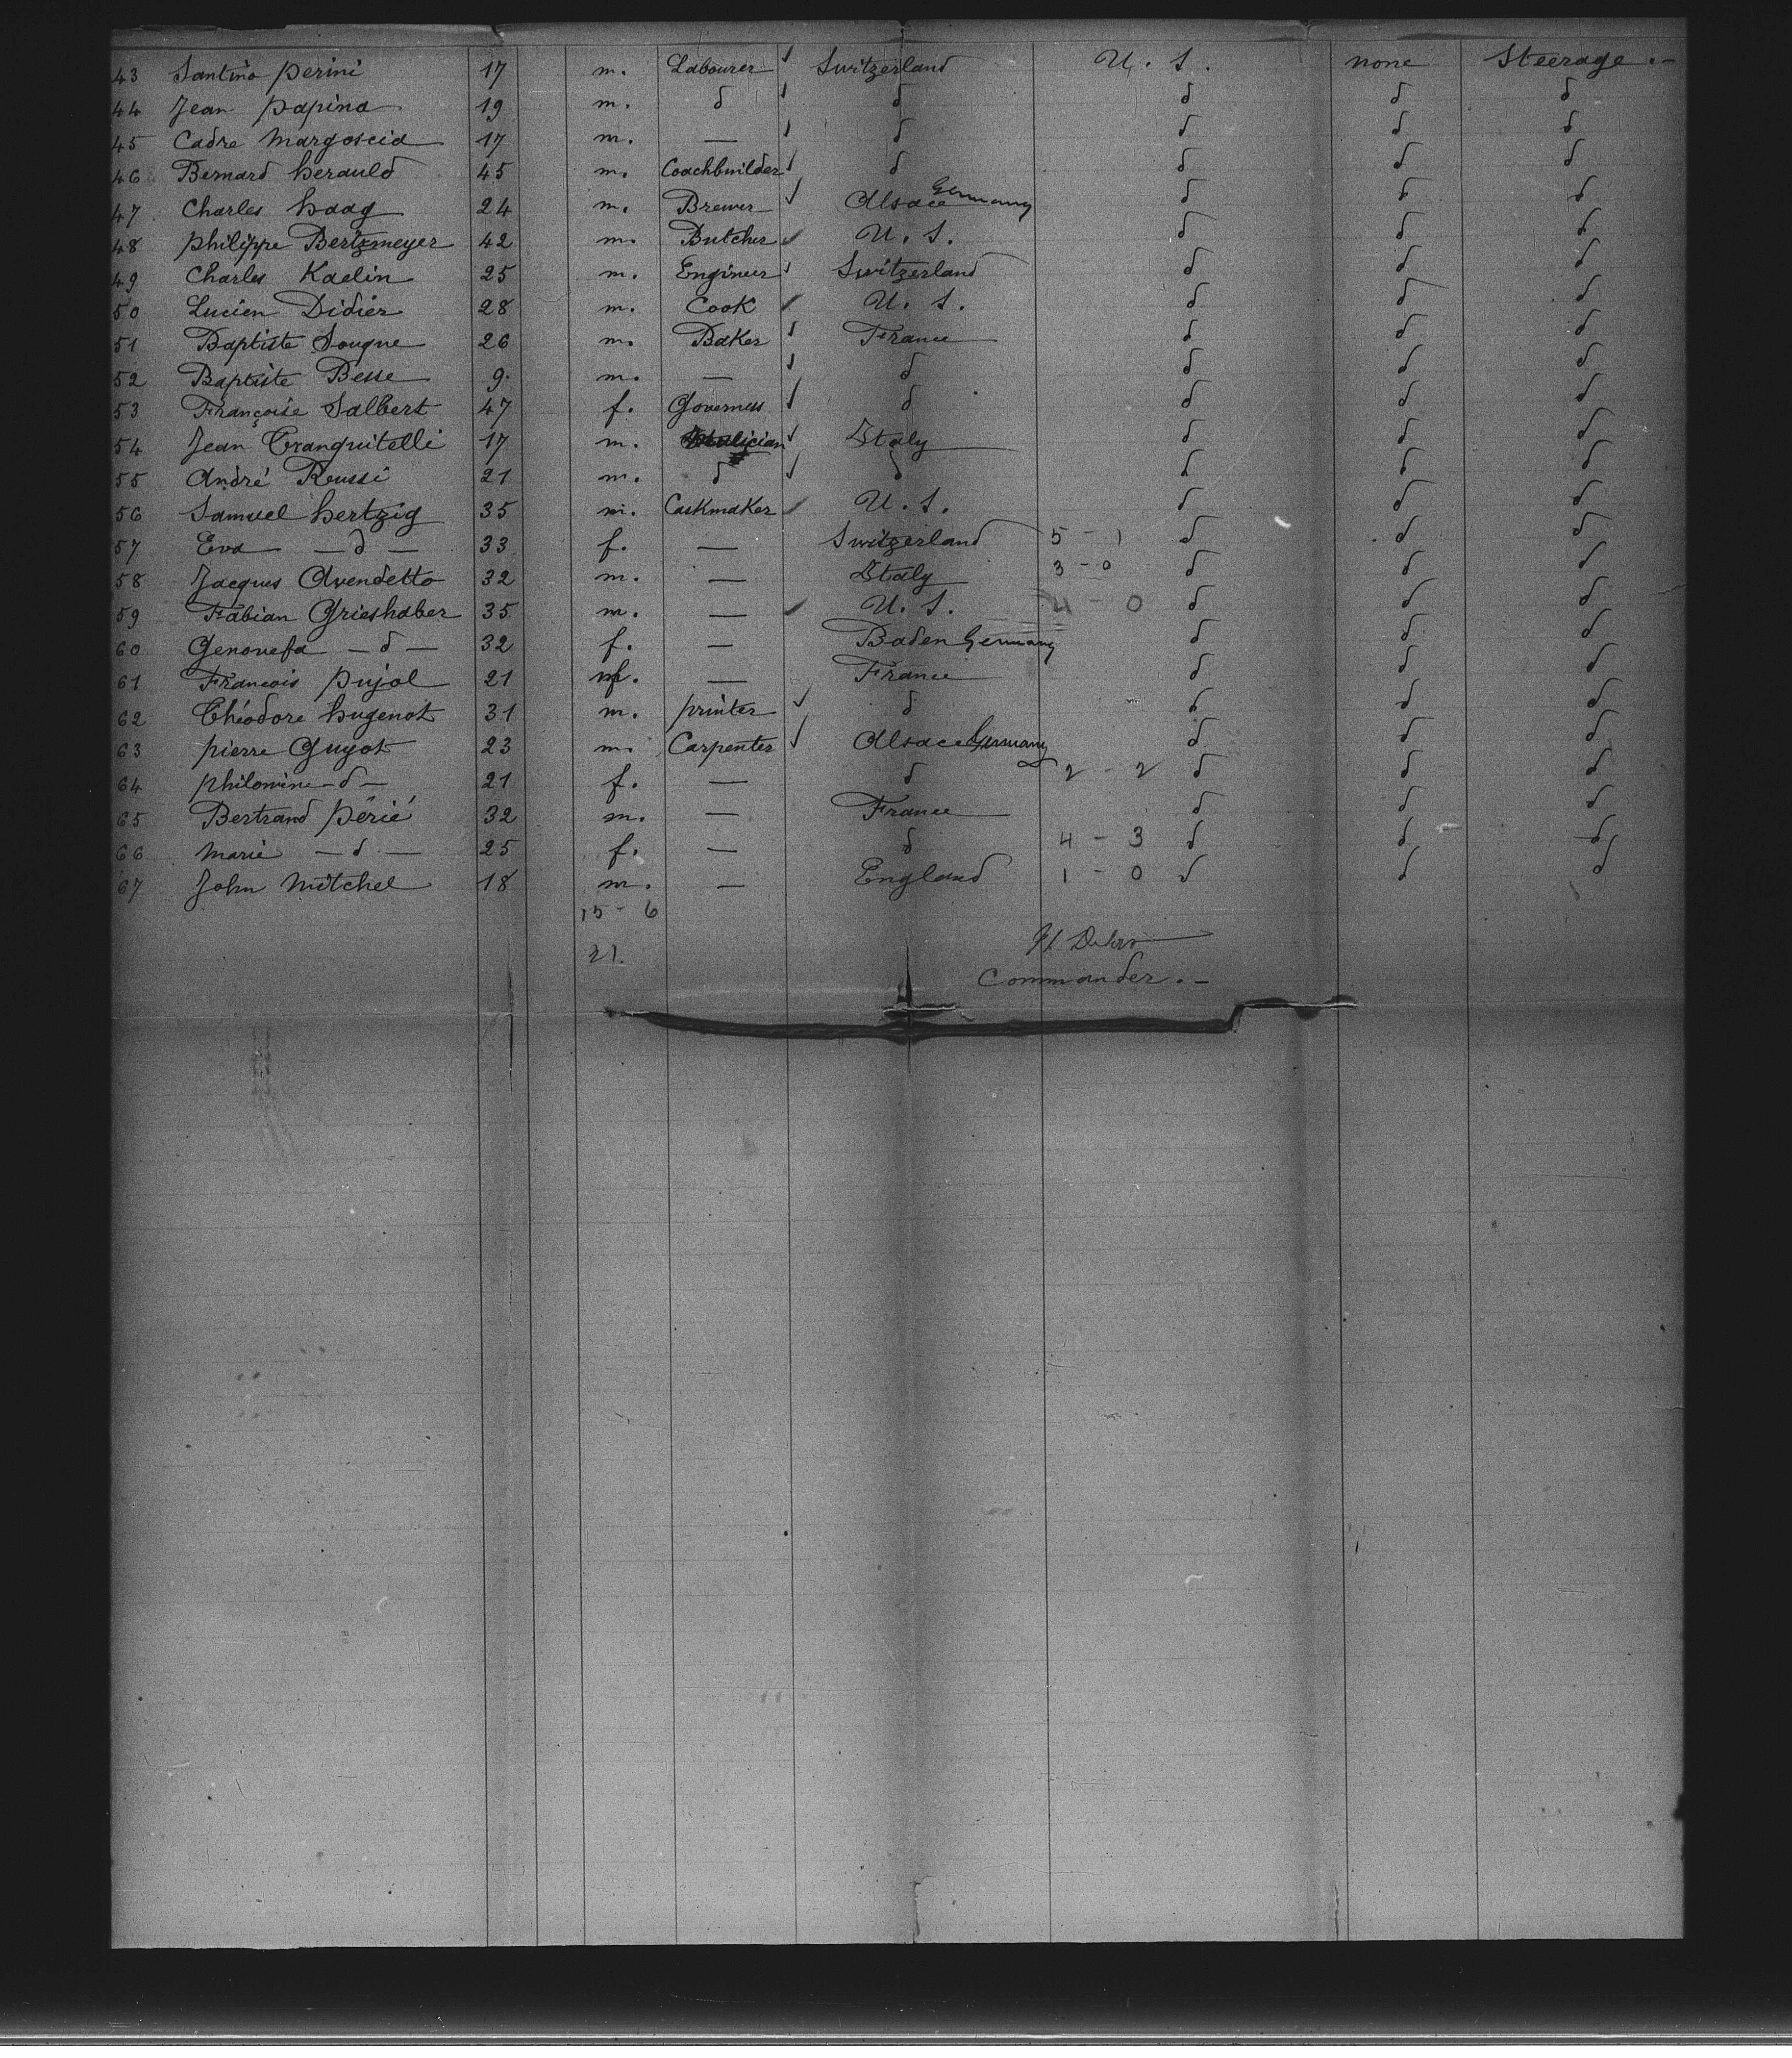 43 Santino Perini 17 m. Labourer Switzerland U. S. none Steerage.-
44 Jean Papina 19 m. d d d d d
45 Cadre Margoscid 17 m. — d d d d
46 Bernard Herauld 45 m. Coachbuilder d d d d
47 Charles Haag 24 m. Brewer Alsace Germany d d d
48 Philippe Bertzmeyer 42 m. Butcher U. S. d d d
49 Charles Kaelin 25 m. Engineer Switzerland d d d
50 Lucien Didier 28 m. Cook U. S. d d d
51 Baptiste Sougne 26 m. Baker France d d d
52 Baptiste Besse 9. m. — d d d d
53 Françoise Salbert 47 f. Governess d d d d
54 Jean Tranquitelli 17 m. Italy d d d
55 André Roussi 21 m. d d d d d
56 Samuel Hertzig 35 m. Caskmaker U. S. d d d
57 Eva — d — 33 f. — Switzerland 5 - 1 d d d
58 Jacques Avendetto 32 m. — Italy 3 - 0 d d d
59 Fabian Grieshaber 35 m. — U. S. 4 - 0 d d d
60 Genovefa — d — 32 f. — Baden Germany d d d
61 Francois Pujol 21 — France d d d
62 Théodore Hugenot 31 m. printer d d d d
63 Pierre Guyot 23 m. Carpenter Alsace Germany d d d
64 Philomine — d — 21 f. — d 2 - 2 d d d
65 Bertrand Périé 32 m. — France d d d
66 Marie — d — 25 f. — d 4 - 3 d d d
67 John Mitchel 18 m. — England 1 - 0 d d d
15 - 6
21.
Commander.-